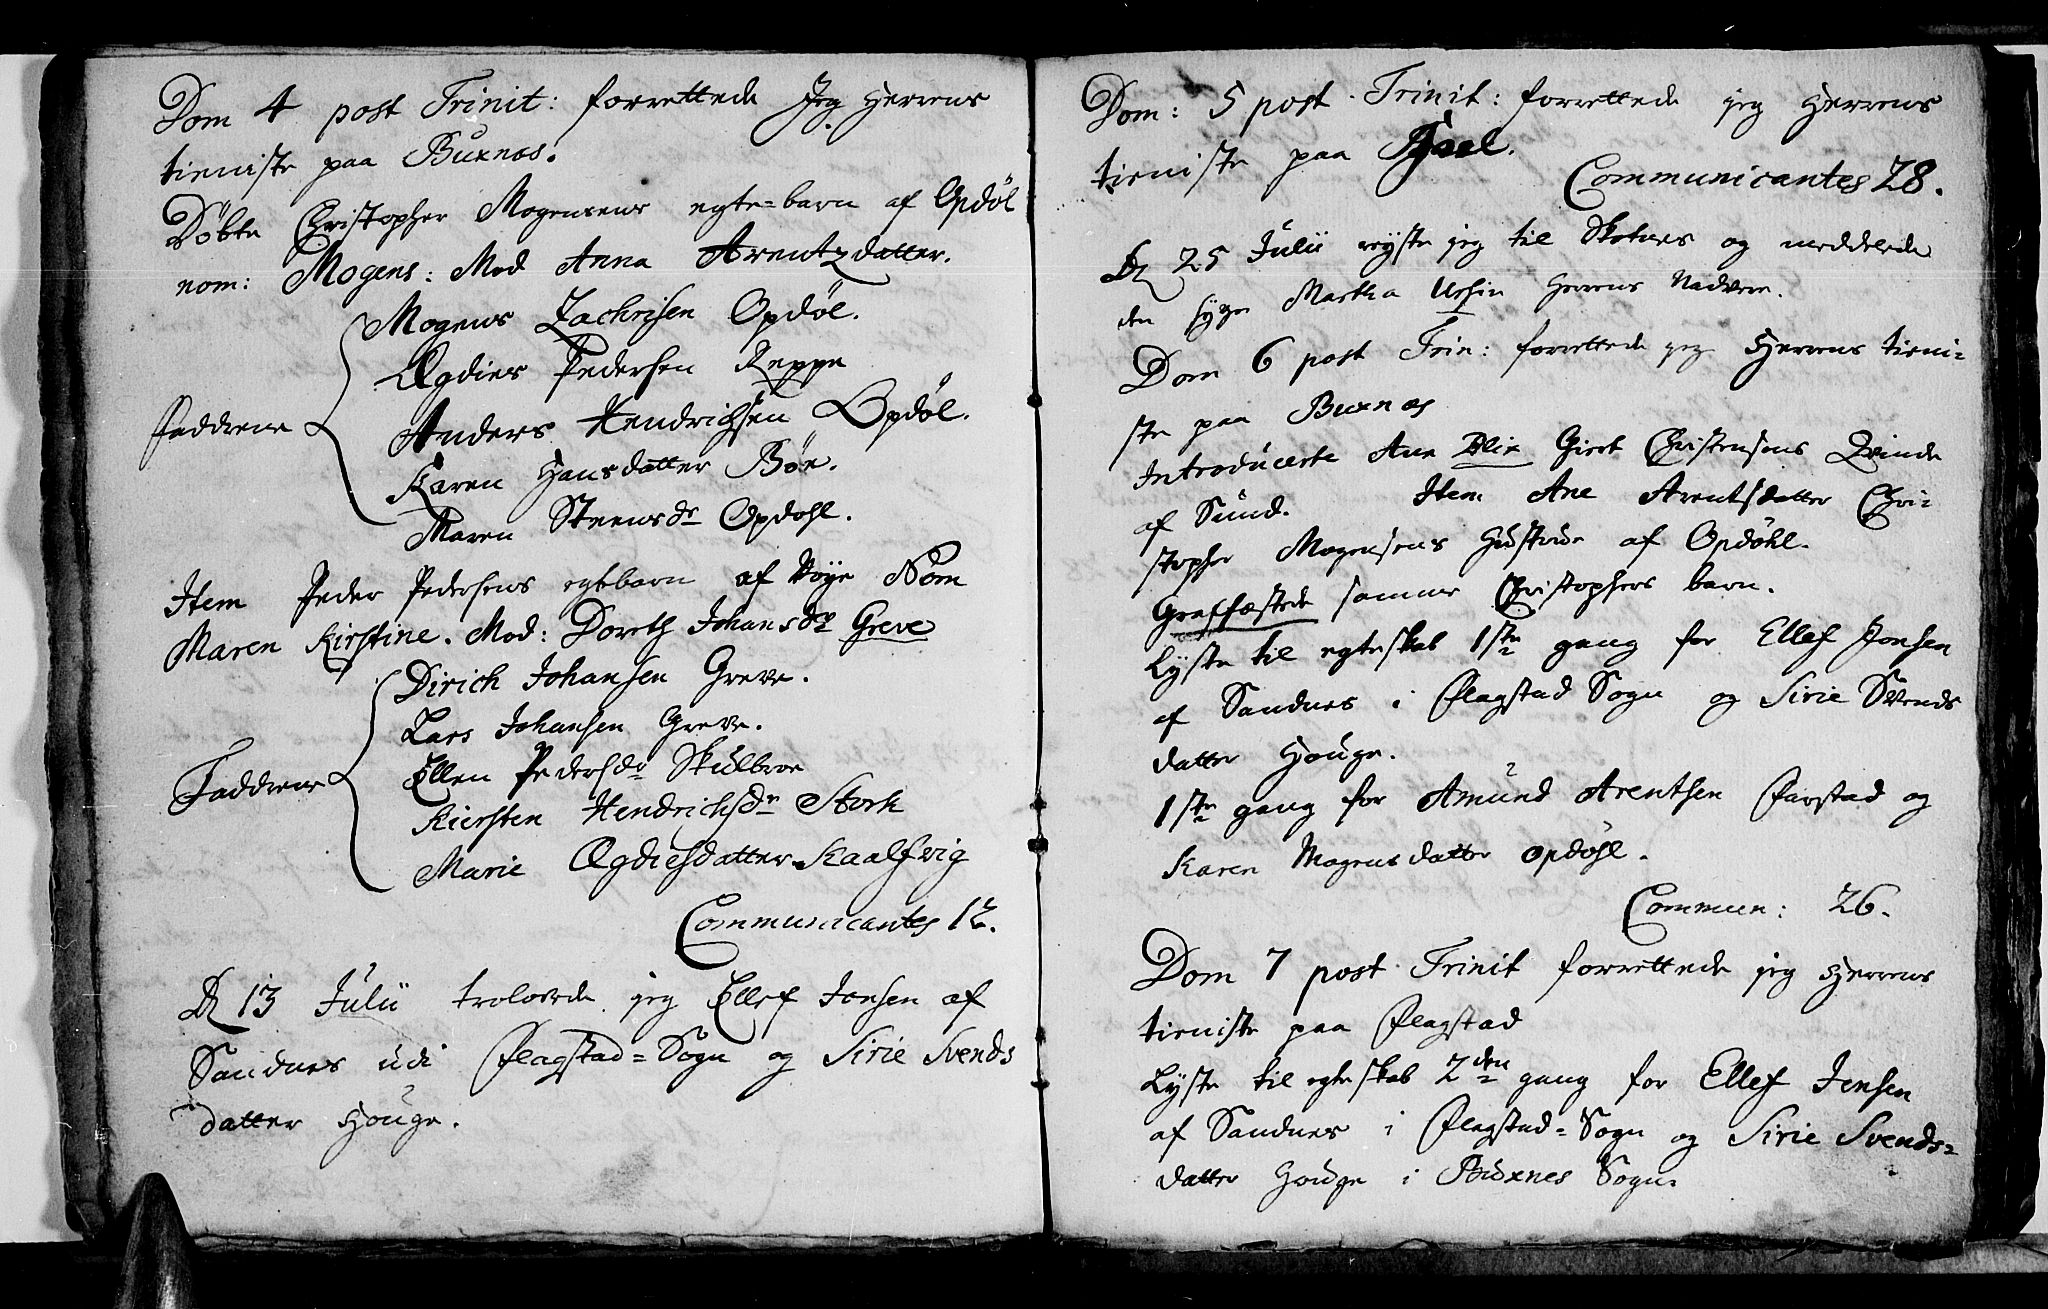 Dom 4 post Trinit: forrettede Jeg Herrens
tieniste paa Buxnæs.
Døbte Christopher Mogensens egte=barn af Opdøl
nom: Mogens: Mod Anna Arentzdatter.
Mogens Zachrisen Opdøl.
Ægdies Pedersen Reppe
Faddrene
Anders Hendrichsen Opdøl.
Karen Hansdatter Bøe.
Maren Steensdr Opdøhl.
Item Peder Pedersens egtebarn af Nom
Maren Kirstine. Mod: Doreth Johansdr Greve
Dirich Johansen Greve.
Lars Johansen Greve.
Faddrene
Ellen Pedersdr Skulbroe
Kiersten Hendrichsdr Stork
Marie Ægdiesdatter Kaalfvig
Communicantes 12.
D 13 Julii trolovede jeg Ellef Jonsen af
Sandnes udi Flagstad=Sogn og Sirie Svends
datter Houge.
Dom: 5 post Trinit: forrettede jeg Herrens
tieniste paa
Communicantes 28.
D 25 Julii reyste jeg til Skotnes og meddelede
den syge Martha Ursin Herrens Nadvere.
Dom 6 post Trin: forrettede jeg Herrens tieni=
ste paa Buxnæs
Introducerte Ane Blix Giert Christensens Qvinde
af Sund. Item Ane Arentsdatter Chri=
stopher Mogensens Hustrue af Opdøhl.
Graffæstede samme Christophers barn.
Lyste til egteskab 1ste gang for Ellef Jonsen
af Sandnes i Flagstad Sogn og Sirie Svends
datter Houge.
1ste gang for Amund Arentsen Farstad og
Karen Mogensdatter Opdøhl.
Commun: 26.
Dom 7 post Trinit forrettede jeg Herrens
tieniste paa Flagstad
Lyste til egteskab 2den gang for Ellef Jensen
af Sandnes i Flagstad=Sogn og Sirie Svends=
datter Houge i Buxnes Sogn.